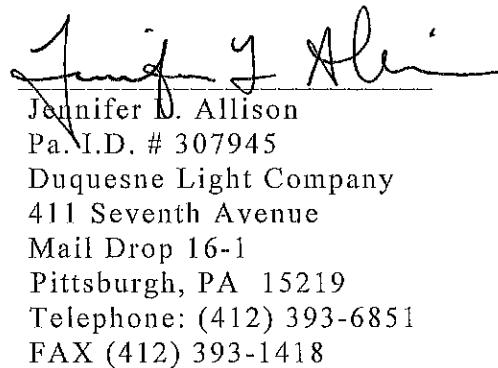 Jennifer L. Allison
Pa. I.D. # 307945
Duquesne Light Company
411 Seventh Avenue
Mail Drop 16-1
Pittsburgh, PA 15219
Telephone: (412) 393-6851
FAX (412) 393-1418